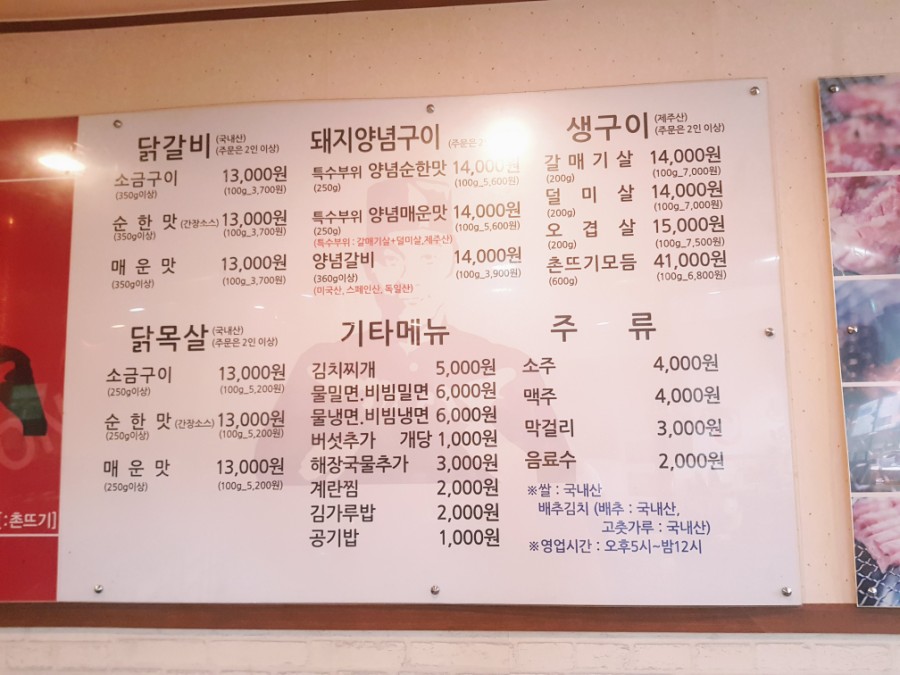 닭갈비 (국내산)
(주문은 2인 이상)
소금구이 13,000원
(350g이상) (100g_3,700원)
순한맛 (간장소스) 13,000원
(350g이상) (100g_3,700원)
매운맛 13,000원
(350g이상) (100g_3,700원)
돼지양념구이 (주문은 2
특수부위 양념순한맛 14,000원
(250g) (100g_5,600원)
특수부위 양념매운맛 14,000원
(250g) (100g_5,600원)
(특수부위 : 갈매기살+덜미살,제주산)
양념갈비 14,000원
(360g이상) (100g_3,900원)
(미국산, 스페인산, 독일산)
생구이 (제주산)
(주문은 2인 이상)
갈매기살 14,000원
(200g) (100g_7,000원)
덜미살 14,000원
(200g) (100g_7,000원)
오겹살 15,000원
(200g) (100g_7,500원)
촌뜨기모듬 41,000원
(600g) (100g_6,800원)
닭목살 (국내산)
(주문은 2인 이상)
소금구이 13,000원
(250g이상) (100g_5,200원)
순한맛 (간장소스) 13,000원
(250g이상) (100g_5,200원)
매운맛 13,000원
(250g이상) (100g_5,200원)
기타메뉴
김치찌개 5,000원
물밀면.비빔밀면 6,000원
물냉면.비빔냉면 6,000원
버섯추가 개당 1,000원
해장국물추가 3,000원
계란찜 2,000원
김가루밥 2,000원
공기밥 1,000원
주류
소주 4,000원
맥주 4,000원
막걸리 3,000원
음료수 2,000원
※쌀 : 국내산
배추김치 (배추 : 국내산,
고춧가루 : 국내산)
※영업시간 : 오후5시~밤12시
:촌뜨기]